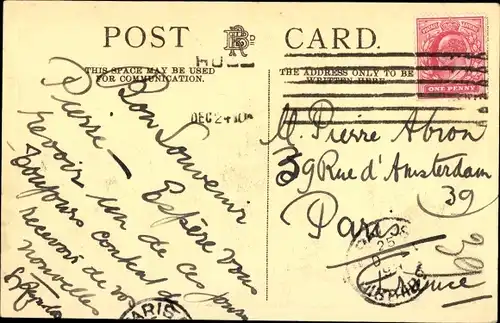 POST CARD.
THIS SPACE MAY BE USED
FOR COMMUNICATION.
THE ADDRESS ONLY TO BE
WRITTEN HERE.
HULL
DEC 24 10
ONE PENNY
Bon Souvenir
Pierre — Espère vous
revoir un de ces jours
Toujours content de
recevoir de vos
nouvelles
M. Pierre Abron
39 Rue d'Amsterdam
39
Paris
France
39
PARIS
25
DISTRIBUTION